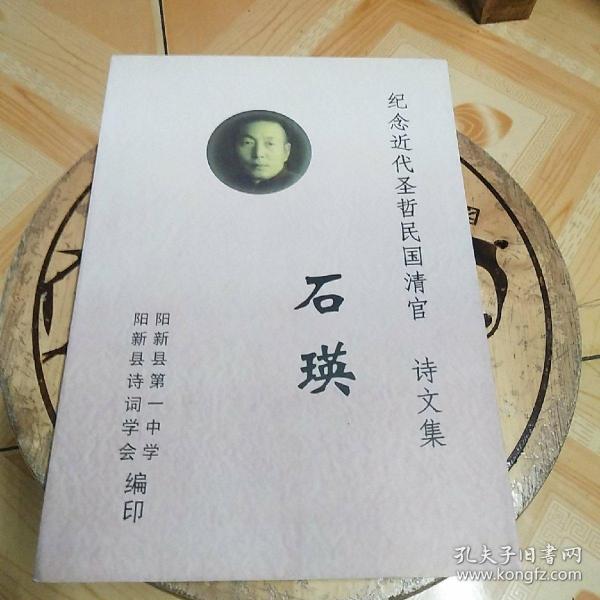 纪念近代圣哲民国清官
石瑛
诗文集
阳新县第一中学
阳新县诗词学会
编印
孔夫子旧书网
www.kongfz.com